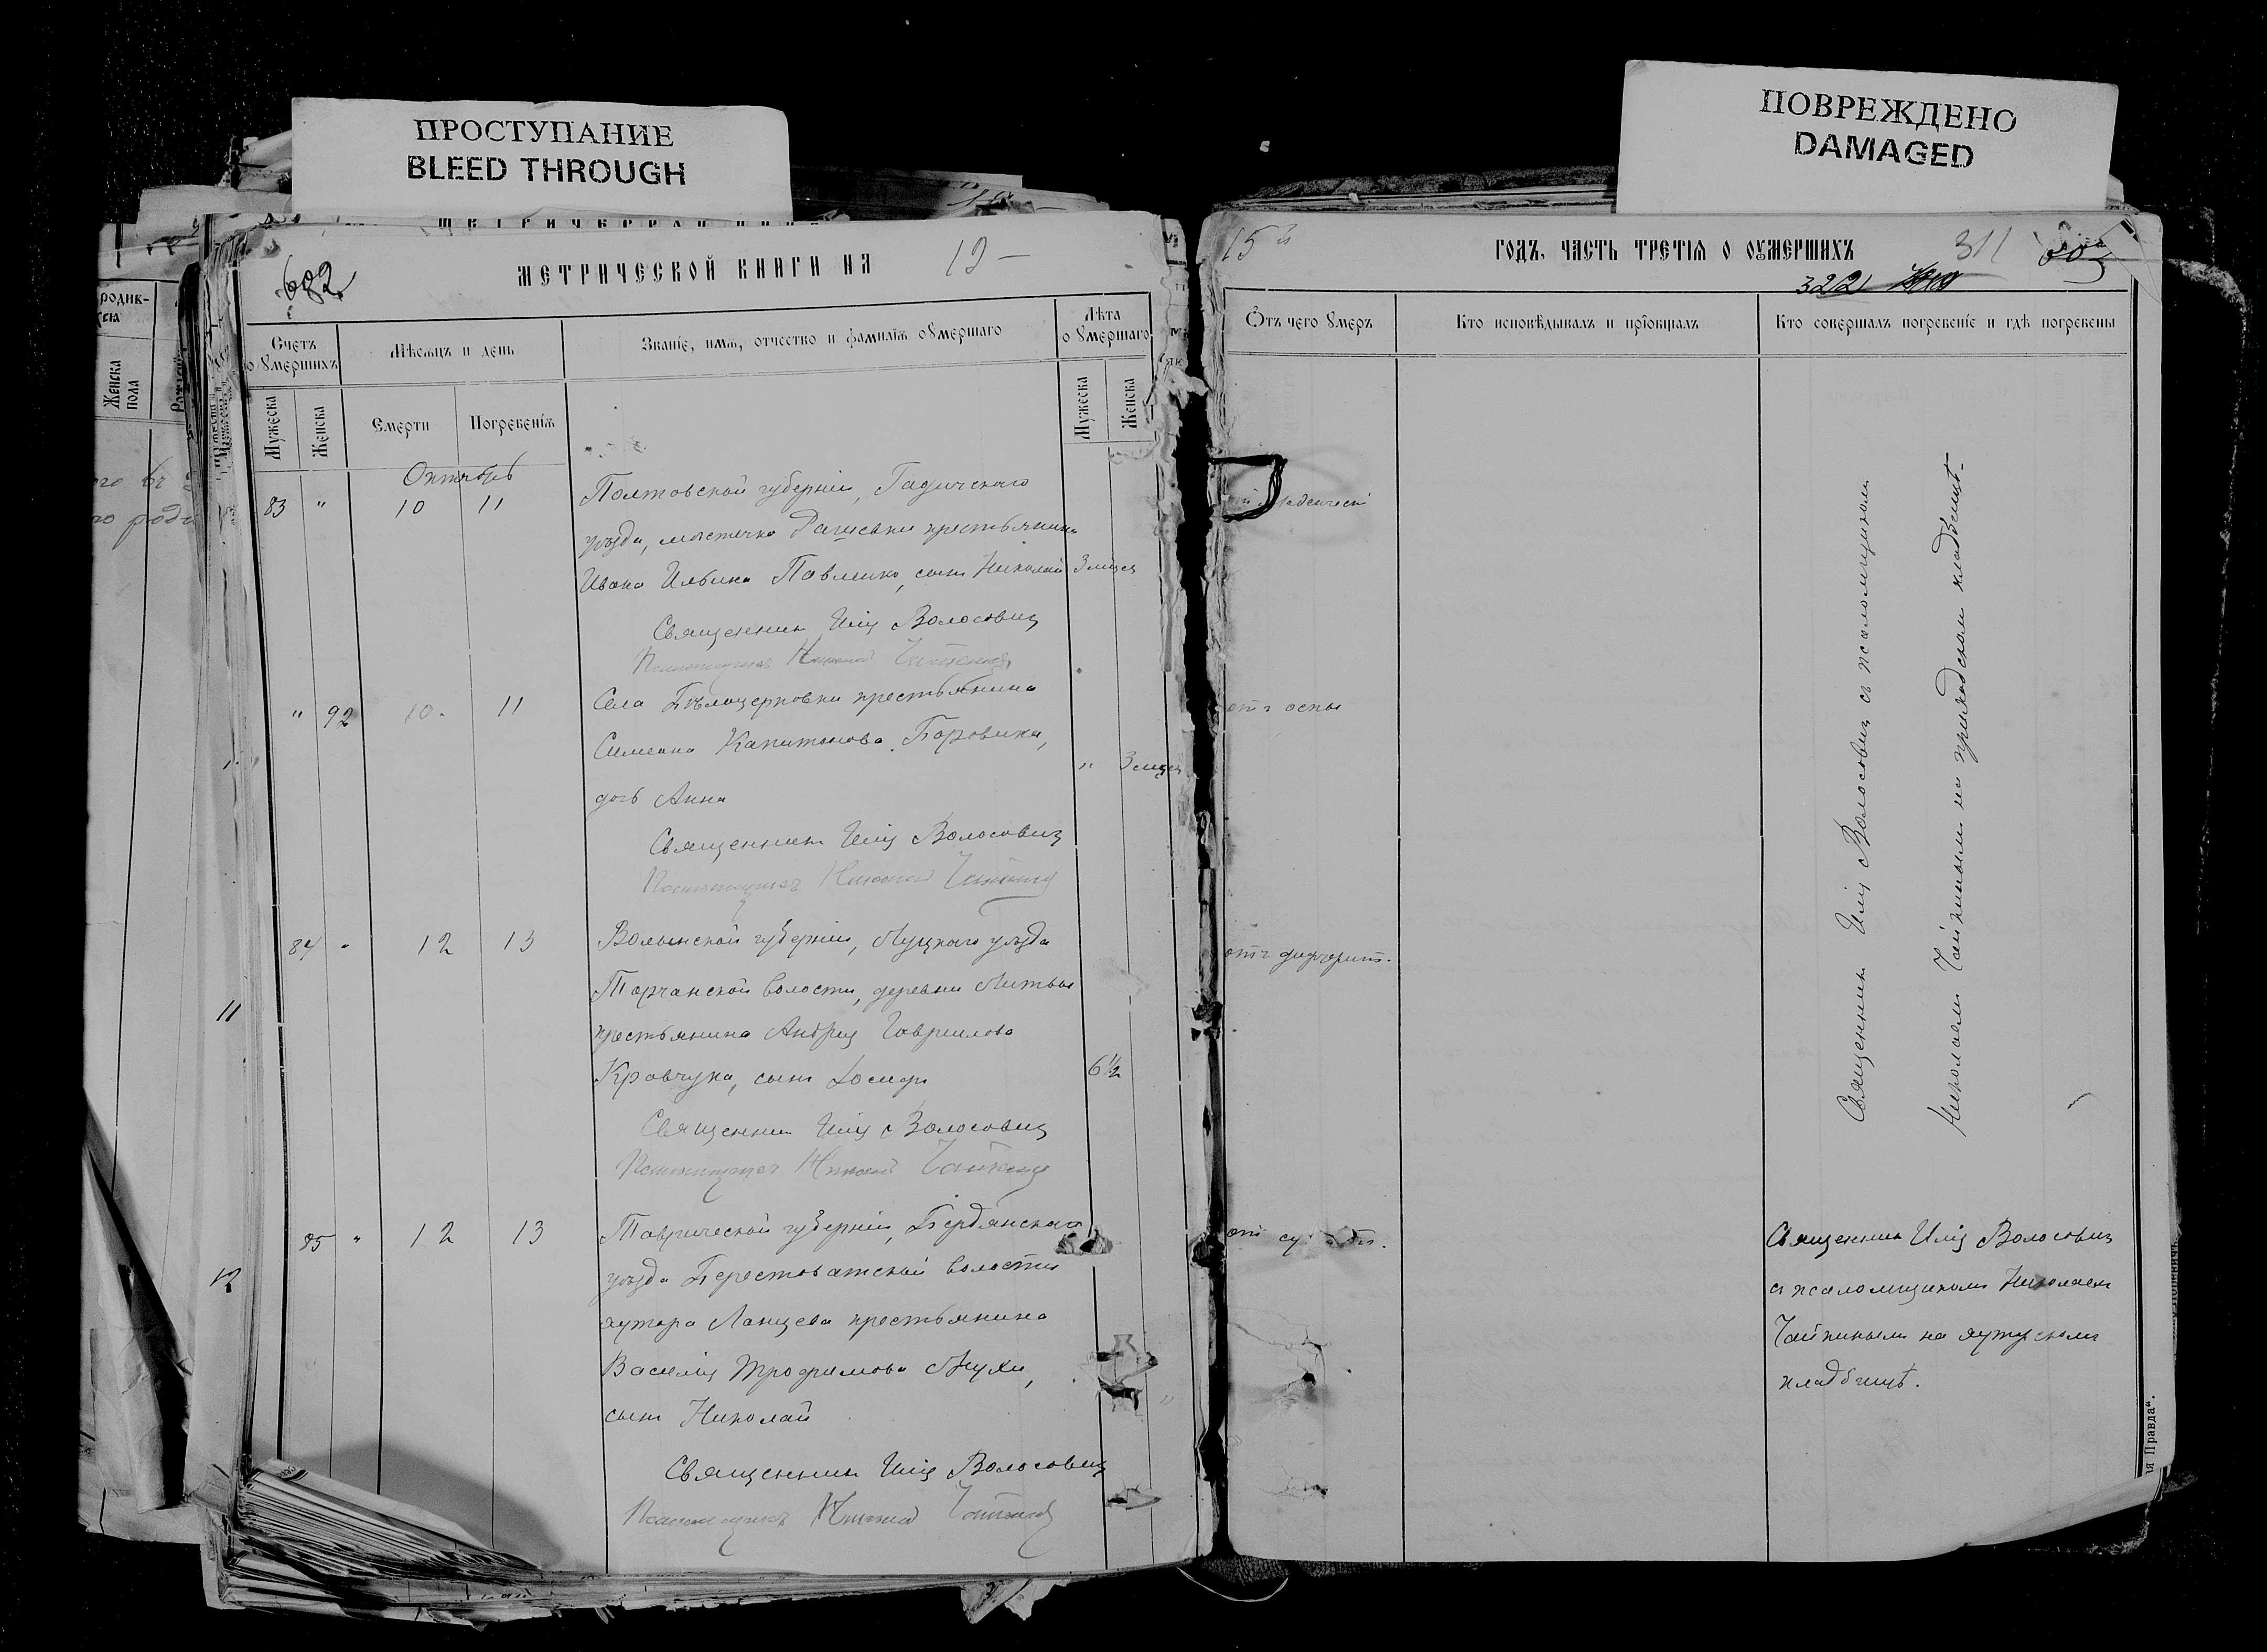 ПРОСТУПАНИЕ
BLEED THROUGH
ПОВРЕЖДЕНО
DAMAGED
682
МЕТРИЧЕСКОЙ КНИГИ НА 19
Счетъ оумершихъ
Мѣсяцъ и день
Званіе, имя, отчество и фамилія оумершаго
Лѣта оумершаго
Мужеска
Женска
Смерти
Погребенія
Мужеска
Женска
Октябрь
83 " 10 11 Полтовской губерніи, Гадячскаго
уѣзда, мѣстечка Рашевки крестьянина
Ивана Ильина Павленко, сынъ Николай 3 мѣсец
Священникъ Илія Волосовичъ
Псаломщикъ Николай Чайкинъ
" 92 10 11 Села Бѣлоцерковки крестьянина
Симеона Капитонова Боровика,
" 3 мѣсец
дочь Анна
Священникъ Илія Волосовичъ
Псаломщикъ Николай Чайкинъ
84 " 12 13 Волынской губерніи, Луцкаго уѣзда
Торчанской волости, деревни Литвы
крестьянина Андрея Гавриилова
Кравчука, сынъ Іосифъ 6 1/2
Священникъ Илія Волосовичъ
Псаломщикъ Николай Чайкинъ
85 " 12 13 Таврической губерніи, Бердянскаго
уѣзда Берестоватской волости
хутора Ланцева крестьянина
Василія Трофимова Мухи,
сынъ Николай
Священникъ Илія Волосовичъ
Псаломщикъ Николай Чайкинъ
11
12
15
ГОДЪ, ЧАСТЬ ТРЕТІЯ О ОУМЕРШИХЪ
311
322
Отъ чего умеръ
Кто исповѣдывалъ и пріобщалъ
Кто совершалъ погребеніе и гдѣ погребены
отъ оспы
отъ дифтерит.
Священникъ Илія Волосовичъ съ псаломщикомъ
Николаемъ Чайкинымъ на приходскомъ кладбищѣ.
Священникъ Илія Волосовичъ
съ псаломщикомъ Николаемъ
Чайкинымъ на хуторскомъ
кладбищѣ.
я Правда".
родив-
Женска пола